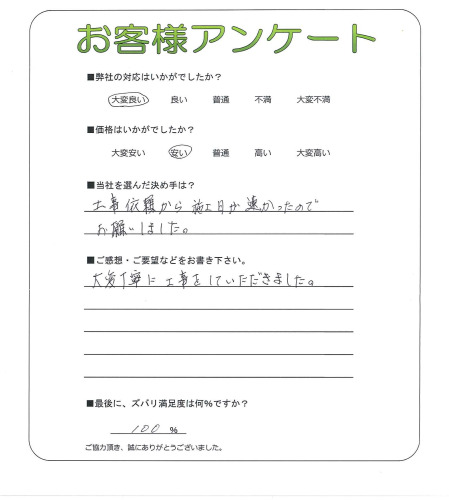 お客様アンケート
■弊社の対応はいかがでしたか？
大変良い 良い 普通 不満 大変不満
■価格はいかがでしたか？
大変安い 安い 普通 高い 大変高い
■当社を選んだ決め手は？
工事依頼から施工日が速かったので
お願いしました。
■ご感想・ご要望などをお書き下さい。
大変丁寧に工事をしていただきました。
■最後に、ズバリ満足度は何％ですか？
100 ％
ご協力頂き、誠にありがとうございました。